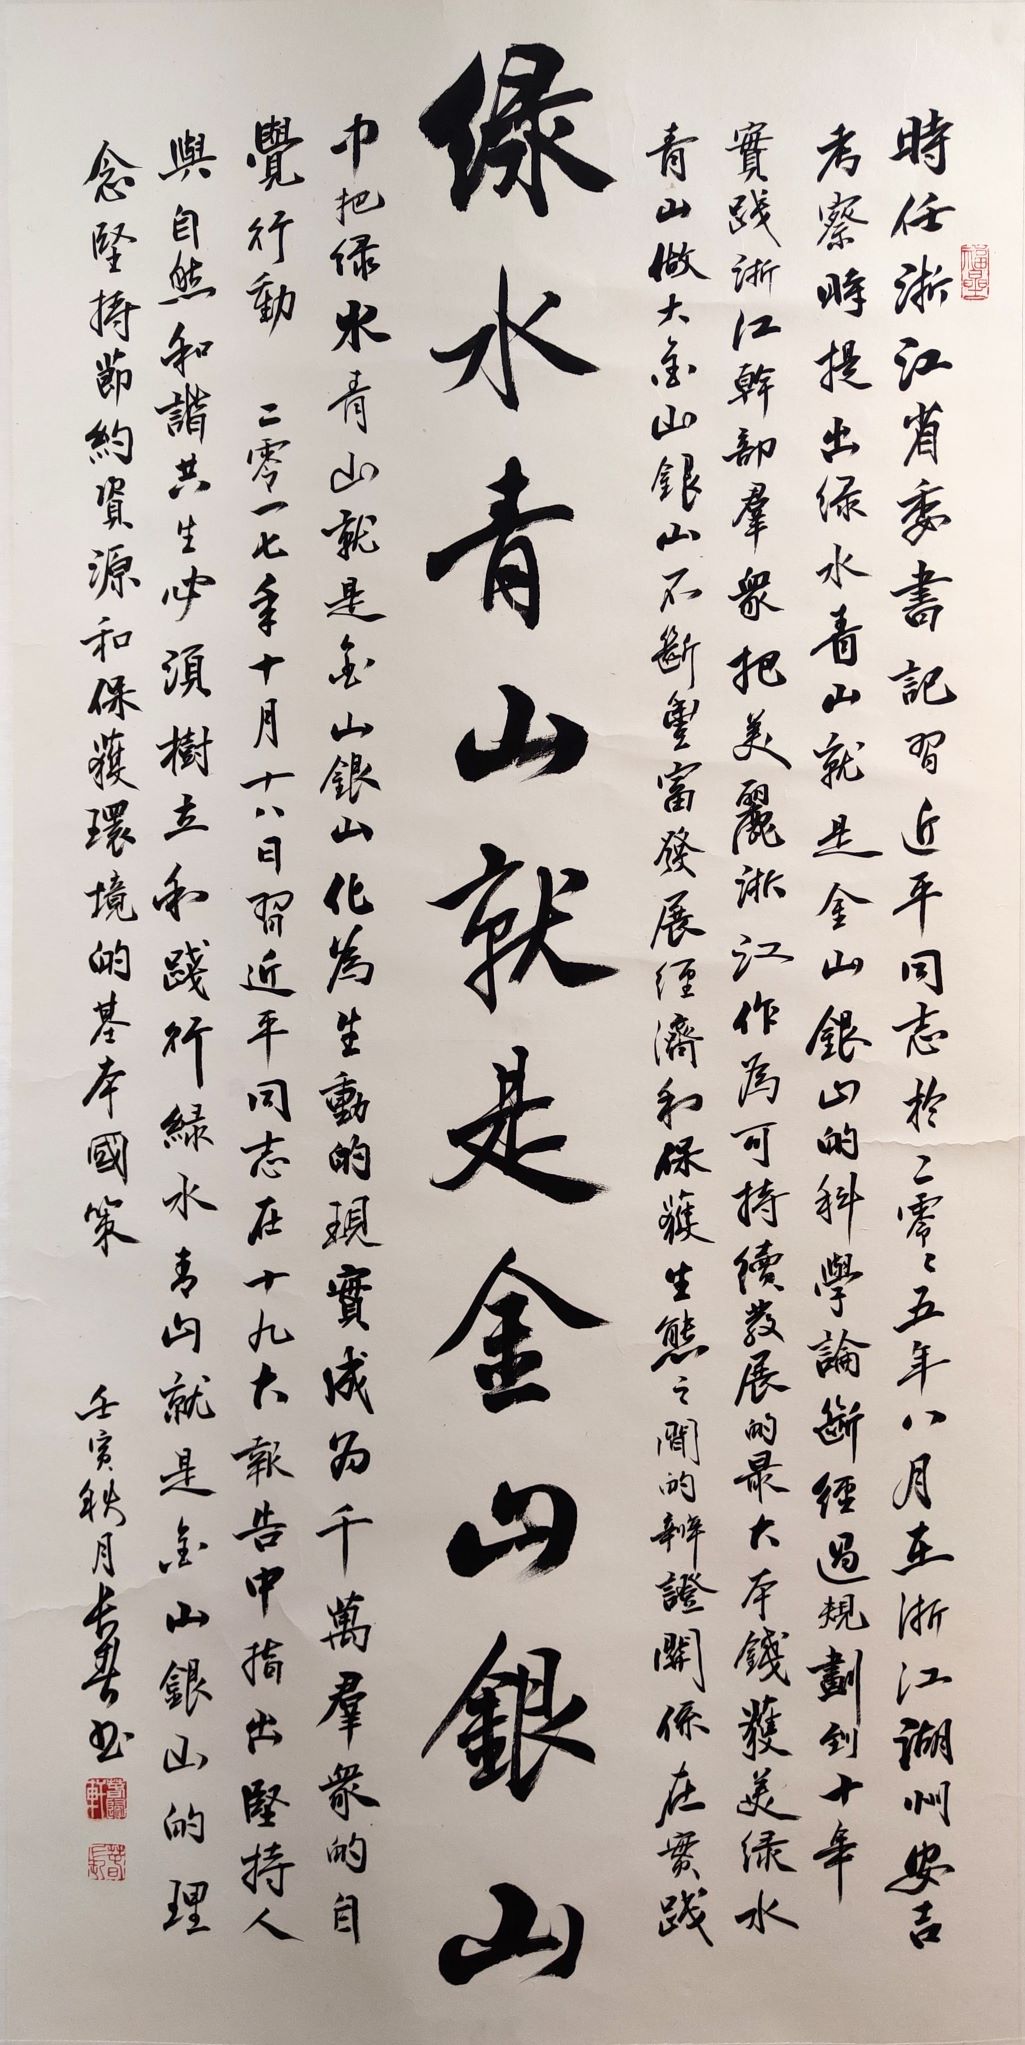 時任浙江省委書記習近平同志於二零零五年八月在浙江湖州安吉
考察時提出緑水青山就是金山銀山的科學論斷經過規劃到十年
實踐浙江幹部羣衆把美麗浙江作為可持續發展的最大本錢護美緑水
青山做大金山銀山不斷豐富發展經濟和保獲生態之間的辨證關係在實踐
緑水青山就是金山銀山
中把緑水青山就是金山銀山化為生動的現實成為千萬羣衆的自
覺行動 二零一七年十月十八日習近平同志在十九大報告中指出堅持人
與自然和諧共生必須樹立和踐行緑水青山就是金山銀山的理
念堅持節約資源和保獲環境的基本國策
壬寅秋月長春书